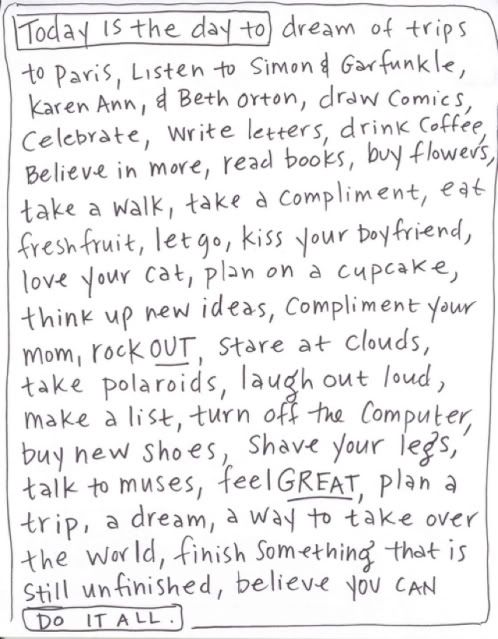 Today is the day to dream of trips
to Paris, Listen to Simon & Garfunkle,
Karen Ann, & Beth Orton, draw Comics,
Celebrate, write letters, drink Coffee,
Believe in more, read books, buy flowers,
take a walk, take a compliment, eat
fresh fruit, let go, kiss your boyfriend,
love your cat, plan on a cupcake,
think up new ideas, Compliment your
mom, rock OUT, stare at clouds,
take polaroids, laugh out loud,
make a list, turn off the Computer,
buy new shoes, Shave your legs,
talk to muses, feel GREAT, plan a
trip, a dream, a way to take over
the world, finish Something that is
Still unfinished, believe YOU CAN
DO IT ALL.